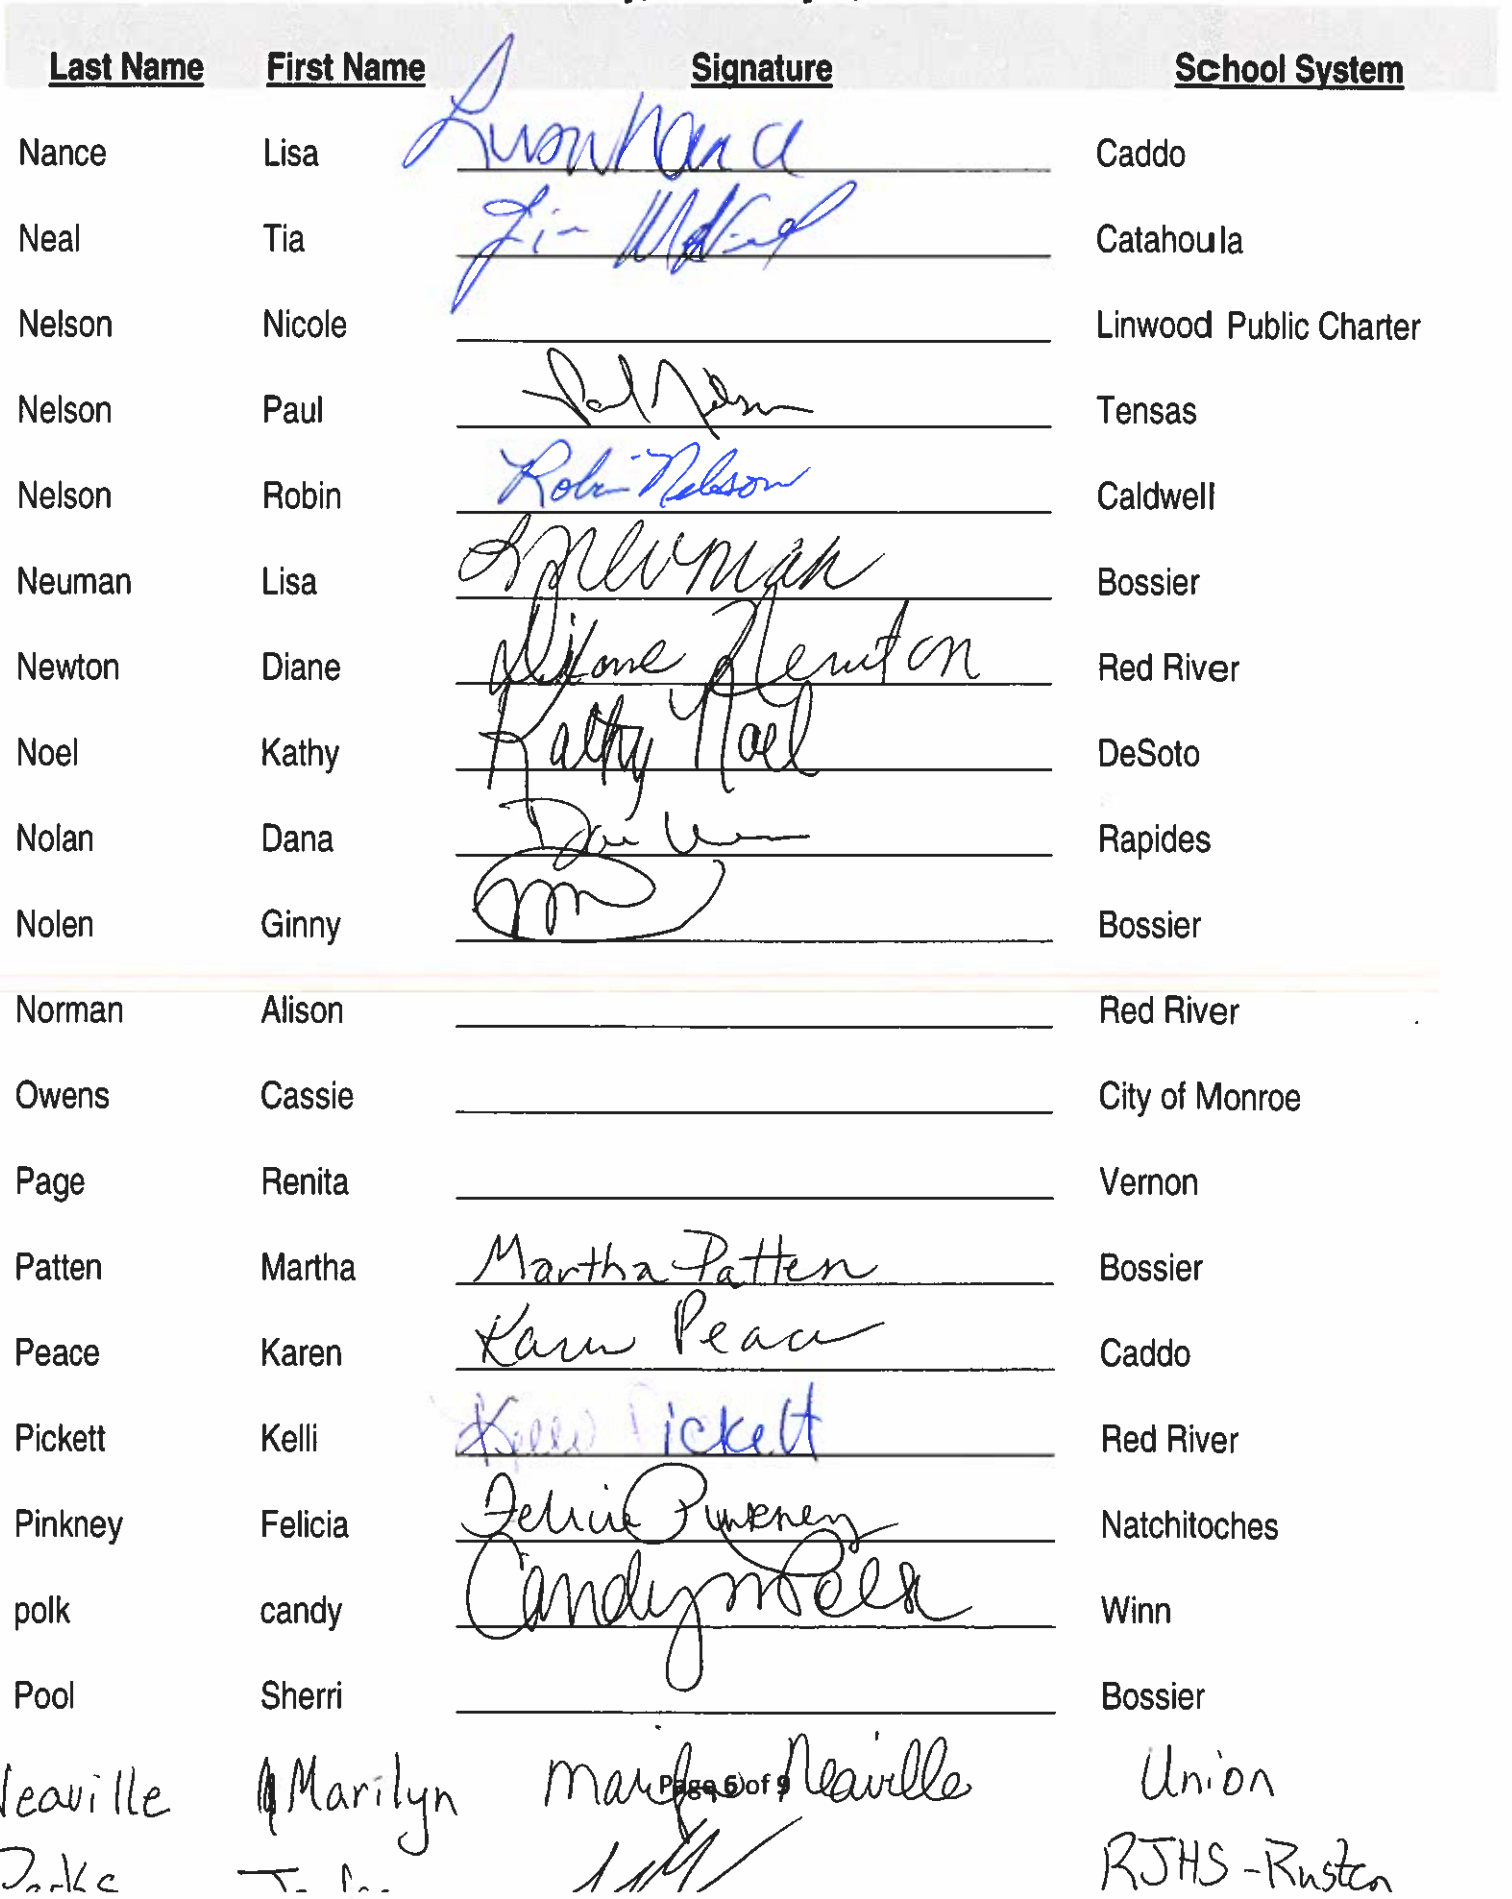 Last Name First Name Signature School System
Nance Lisa Lisa Nance Caddo
Neal Tia Tia Catahoula
Nelson Nicole Linwood Public Charter
Nelson Paul Paul Nelson Tensas
Nelson Robin Robin Nelson Caldwell
Neuman Lisa L Neuman Bossier
Newton Diane Diane Newton Red River
Noel Kathy Kathy Noel DeSoto
Nolan Dana Rapides
Nolen Ginny Bossier
Norman Alison Red River
Owens Cassie City of Monroe
Page Renita Vernon
Patten Martha Martha Patten Bossier
Peace Karen Karen Peace Caddo
Pickett Kelli Kelli Pickett Red River
Pinkney Felicia Felicia Pinkney Natchitoches
polk candy Candy M Polk Winn
Pool Sherri Bossier
Neaville Marilyn Marilyn Neaville Union
Page 6 of 9
RJHS - Ruston